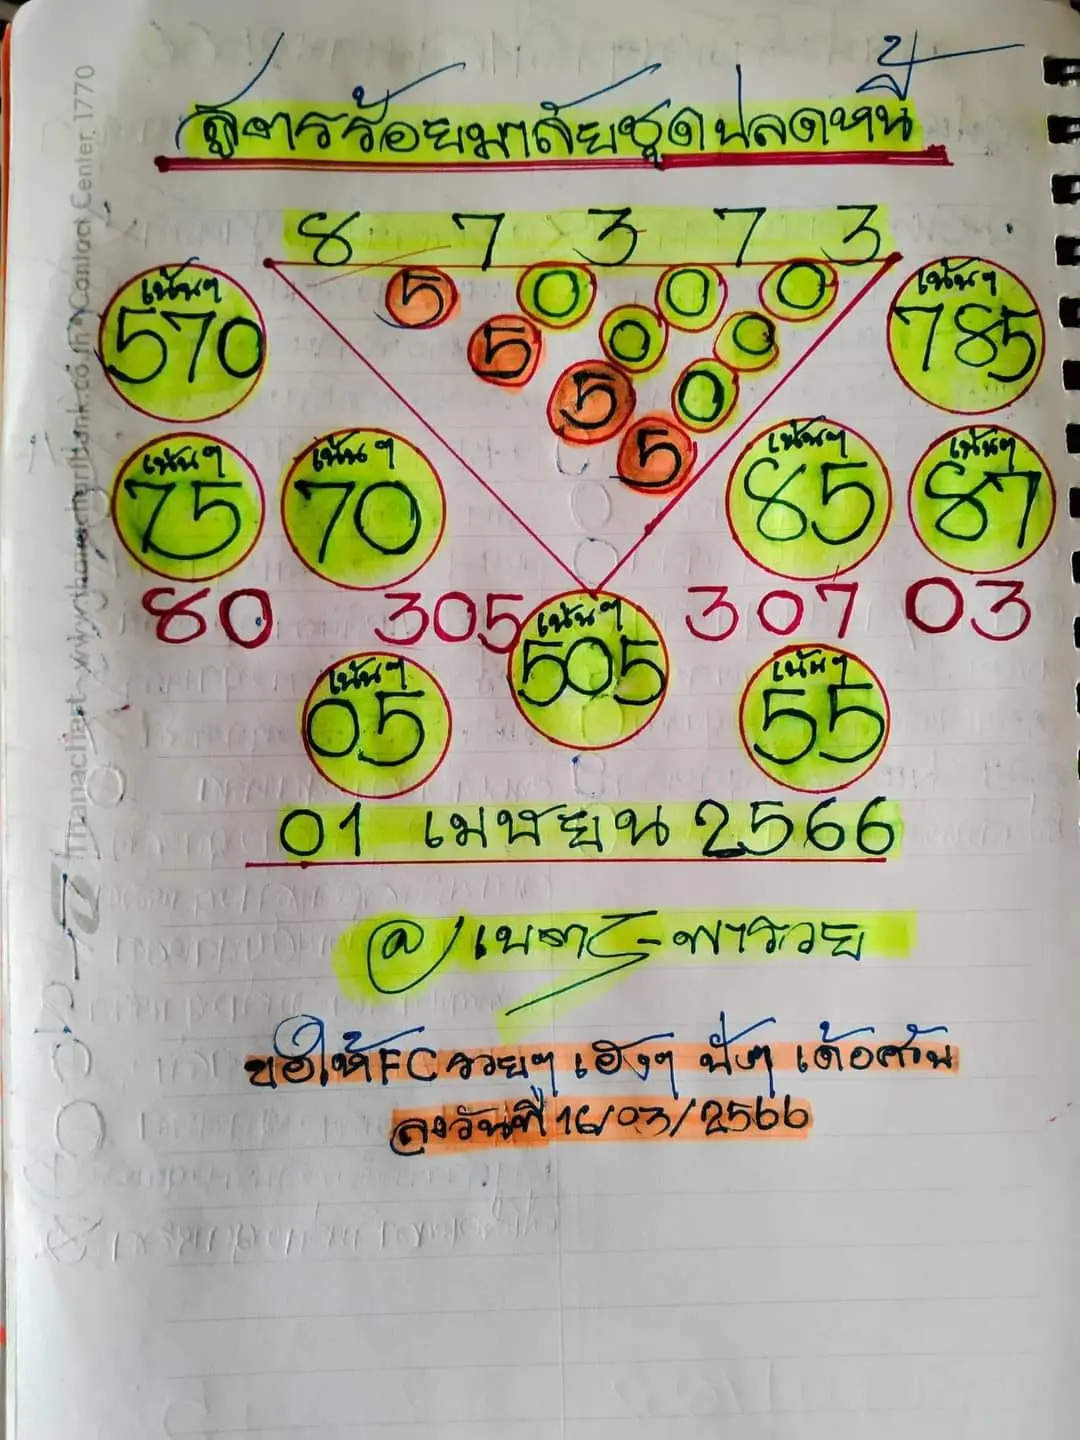 สูตรร้อยมาลัยชุดปลดหนี้
8 7 3 7 3
5 0 0 0
5 0 0
5 0
5
เน้นๆ
570
เน้นๆ
785
เน้นๆ
75
เน้นๆ
70
เน้นๆ
85
เน้นๆ
87
80 305 307 03
เน้นๆ
505
เน้นๆ
05
เน้นๆ
55
01 เมษยน 2566
ขอให้ FC รวยๆ เฮงๆ ปังๆ เด้อครับ
ลงวันที่ 16/03/2566
Contact Center 1770